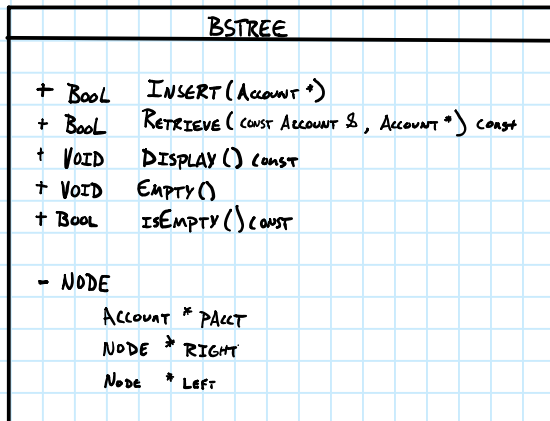 BSTREE
+ BOOL INSERT(ACCOUNT *)
+ BOOL RETRIEVE(CONST ACCOUNT &, ACCOUNT *) CONST
+ VOID DISPLAY() CONST
+ VOID EMPTY()
+ BOOL ISEMPTY() CONST
- NODE
ACCOUNT * PACCT
NODE * RIGHT
NODE * LEFT